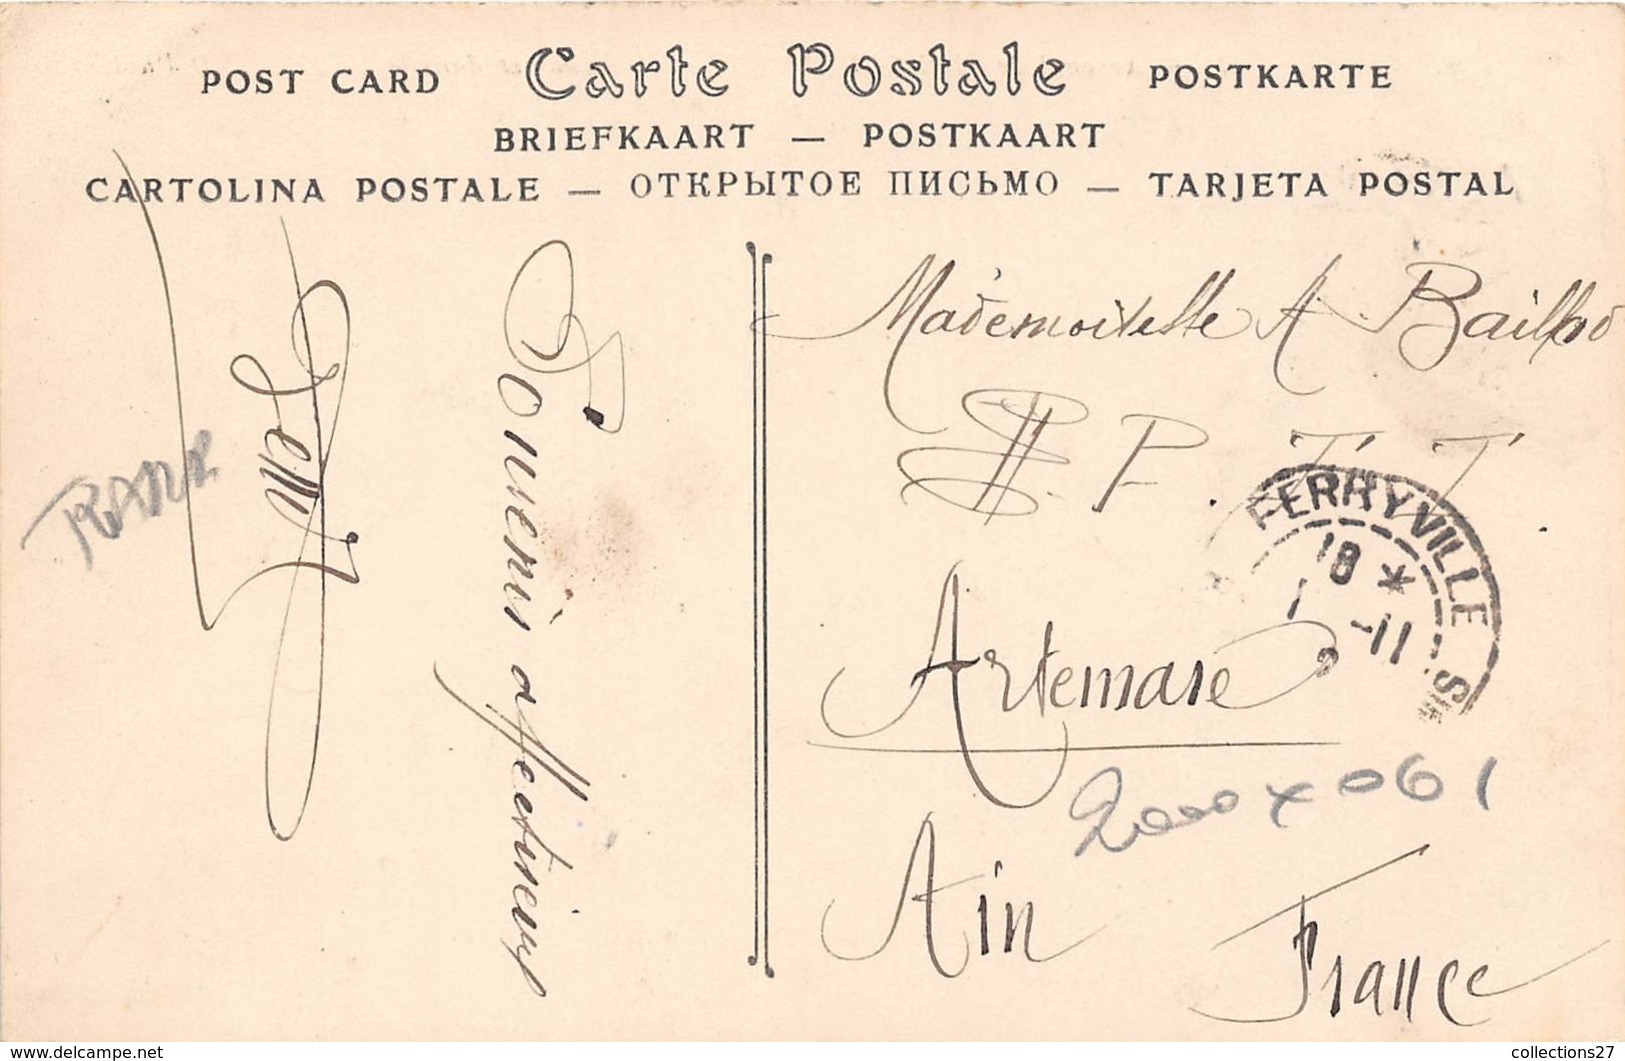 POST CARD Carte Postale POSTKARTE
BRIEFKAART — POSTKAART
CARTOLINA POSTALE — ОТКРЫТОЕ ПИСЬМО — TARJETA POSTAL
Souvenir affectueux
RARE
Mademoiselle A Bailhod
P. T. T.
FERRYVILLE
18 *
1 -11
Artemare
2000 x 061
Ain
France
www.delcampe.net
collections27